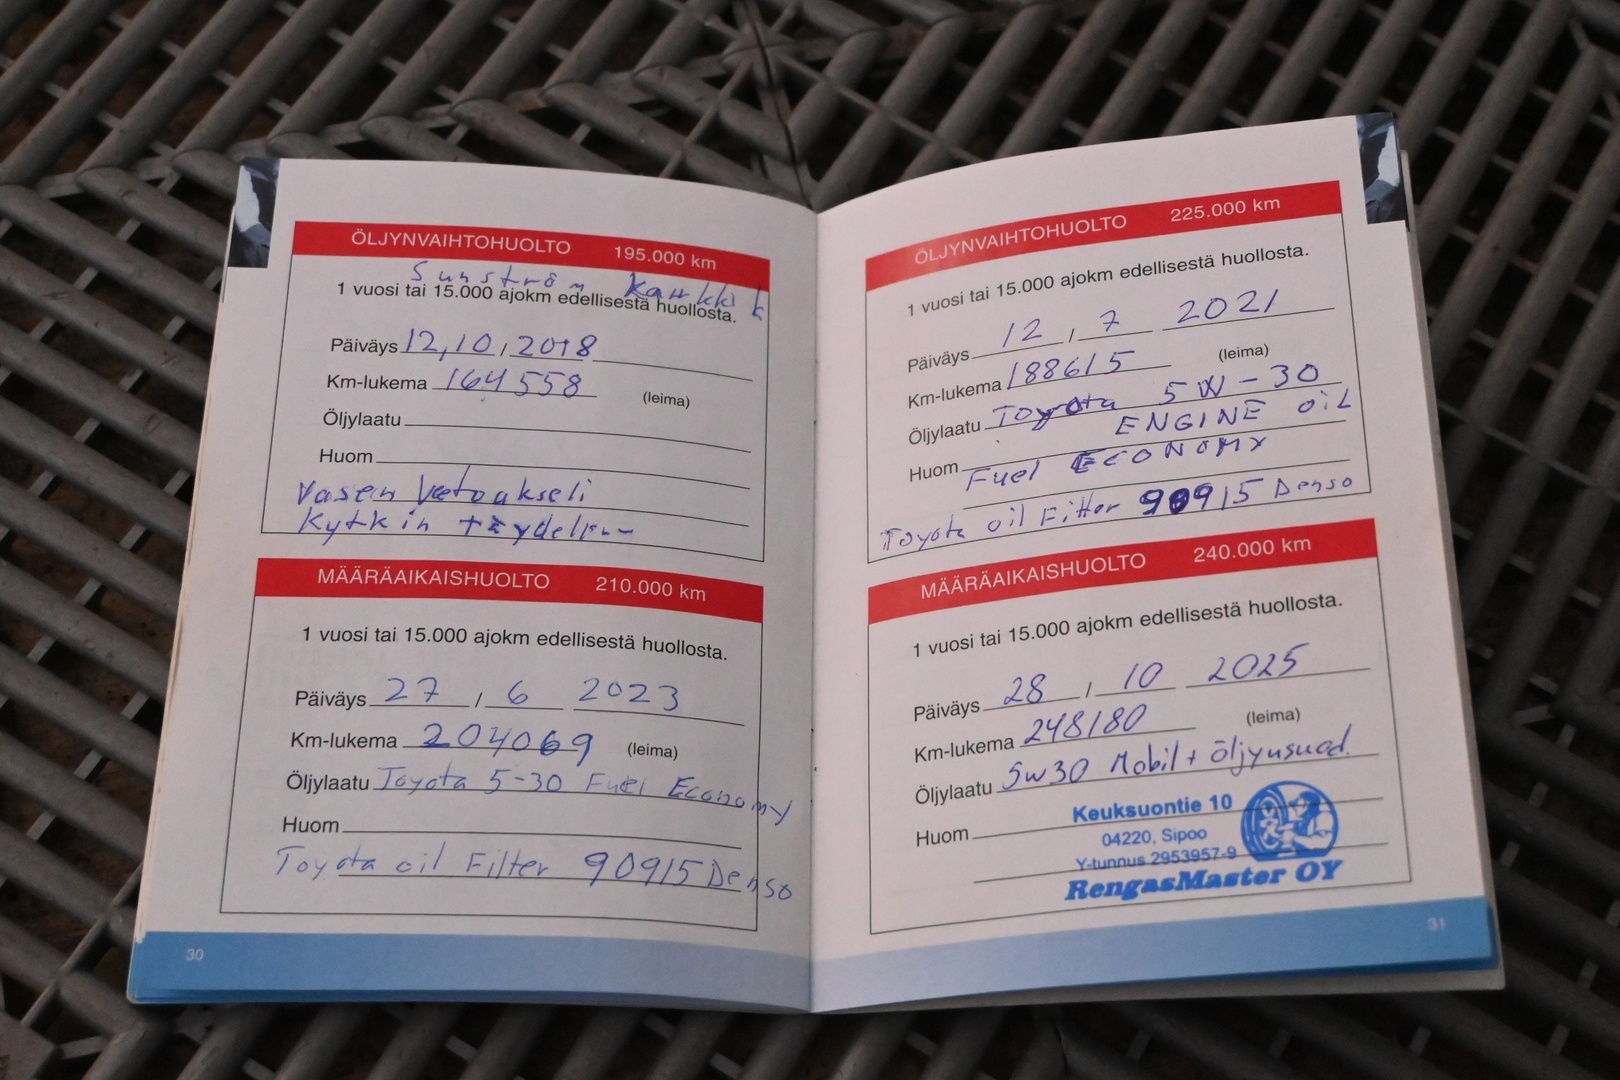 ÖLJYNVAIHTOHUOLTO 195.000 km
Sunström Karkki k
1 vuosi tai 15.000 ajokm edellisestä huollosta.
Päiväys 12,10 / 2018
Km-lukema 164558 (leima)
Öljylaatu
Huom
Vasen Vetoakseli
Kytkin
MÄÄRÄAIKAISHUOLTO 210.000 km
1 vuosi tai 15.000 ajokm edellisestä huollosta.
Päiväys 27 / 6 2023
Km-lukema 204069 (leima)
Öljylaatu Toyota 5-30 Fuel Economy
Huom
Toyota oil Filter 90915 Denso
30
ÖLJYNVAIHTOHUOLTO 225.000 km
1 vuosi tai 15.000 ajokm edellisestä huollosta.
Päiväys 12 / 7 2021
Km-lukema 188615 (leima)
Öljylaatu Toyota 5W-30
ENGINE OIL
Huom Fuel ECONOMY
Toyota oil Filter 90915 Denso
MÄÄRÄAIKAISHUOLTO 240.000 km
1 vuosi tai 15.000 ajokm edellisestä huollosta.
Päiväys 28 / 10 2025
Km-lukema 248180 (leima)
Öljylaatu 5w30 Mobil + öljynsuod.
Huom
Keuksuontie 10
04220, Sipoo
Y-tunnus 2953957-9
RengasMaster OY
31